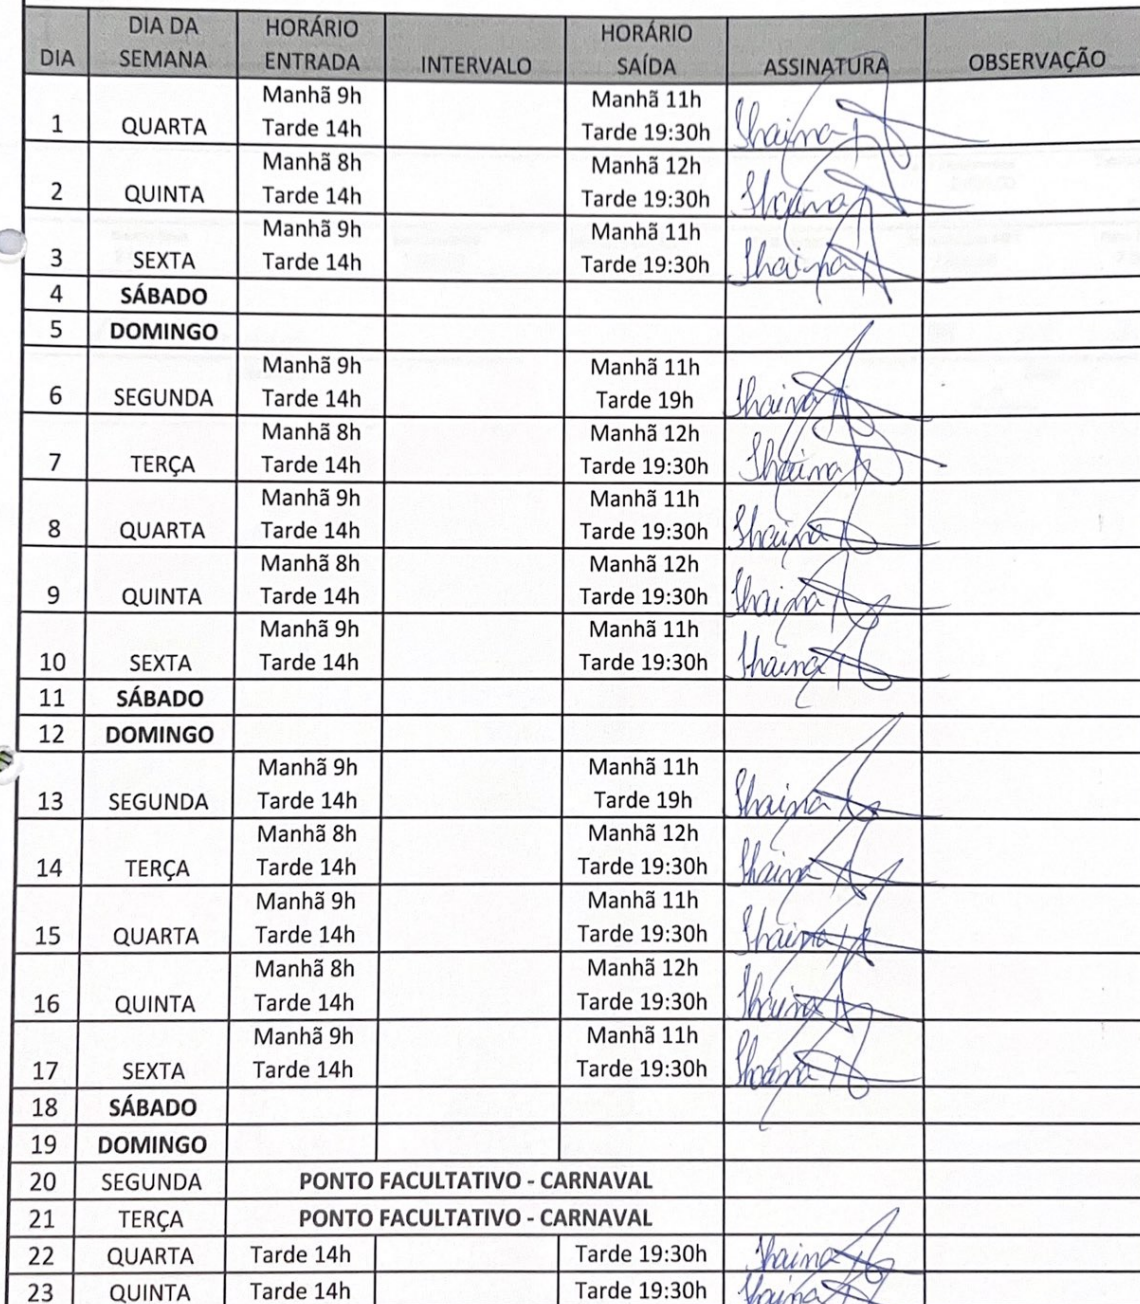 DIA DIA DA SEMANA HORÁRIO ENTRADA INTERVALO HORÁRIO SAÍDA ASSINATURA OBSERVAÇÃO
1 QUARTA Manhã 9h Tarde 14h Manhã 11h Tarde 19:30h Thaina
2 QUINTA Manhã 8h Tarde 14h Manhã 12h Tarde 19:30h Thaina
3 SEXTA Manhã 9h Tarde 14h Manhã 11h Tarde 19:30h Thaina
4 SÁBADO
5 DOMINGO
6 SEGUNDA Manhã 9h Tarde 14h Manhã 11h Tarde 19h Thaina
7 TERÇA Manhã 8h Tarde 14h Manhã 12h Tarde 19:30h Thaina
8 QUARTA Manhã 9h Tarde 14h Manhã 11h Tarde 19:30h Thaina
9 QUINTA Manhã 8h Tarde 14h Manhã 12h Tarde 19:30h Thaina
10 SEXTA Manhã 9h Tarde 14h Manhã 11h Tarde 19:30h Thaina
11 SÁBADO
12 DOMINGO
13 SEGUNDA Manhã 9h Tarde 14h Manhã 11h Tarde 19h Thaina
14 TERÇA Manhã 8h Tarde 14h Manhã 12h Tarde 19:30h Thaina
15 QUARTA Manhã 9h Tarde 14h Manhã 11h Tarde 19:30h Thaina
16 QUINTA Manhã 8h Tarde 14h Manhã 12h Tarde 19:30h Thaina
17 SEXTA Manhã 9h Tarde 14h Manhã 11h Tarde 19:30h Thaina
18 SÁBADO
19 DOMINGO
20 SEGUNDA PONTO FACULTATIVO - CARNAVAL
21 TERÇA PONTO FACULTATIVO - CARNAVAL
22 QUARTA Tarde 14h Tarde 19:30h Thaina
23 QUINTA Tarde 14h Tarde 19:30h Thaina